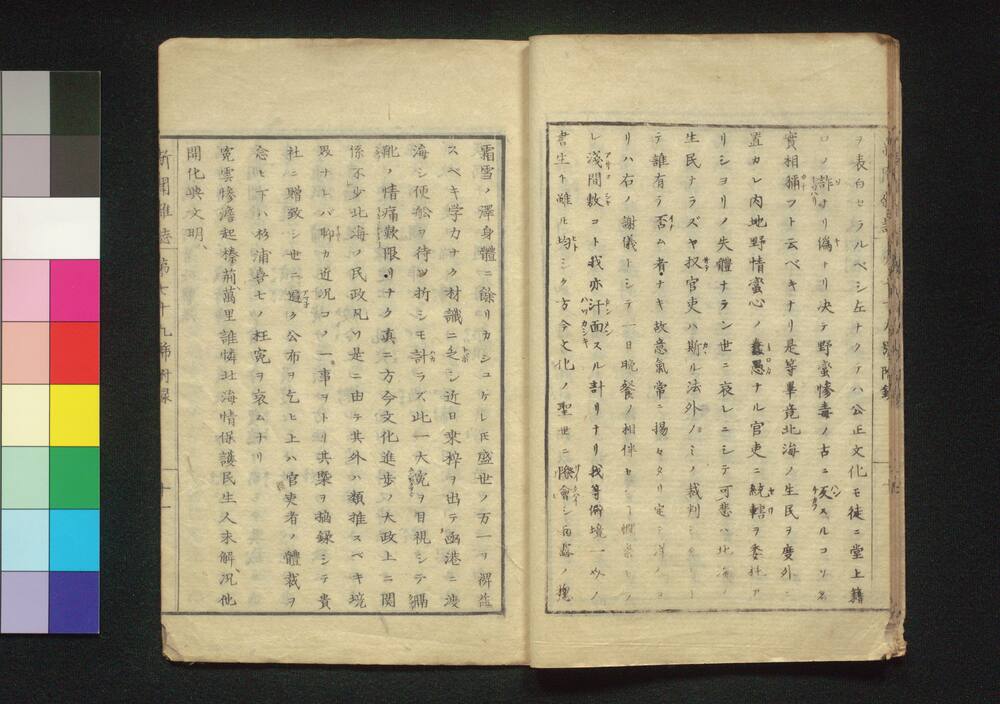 ヲ表白セラルベシ左ナクテハ公正文化モ徒ニ堂上籍
ロノ詐ナリ偽トナリ决テ野蛮惨毒ノ古ニ反スルコソ名
實相稱フト云ベキナリ是等畢竟北海ノ生民ヲ度外ニ
置カレ内地野情蛮心ノ蠢愚ナル官吏ニ統轄ヲ委托ア
リシヨリノ失體ナラン世ニ哀レニシテ可悲ハ北海ノ
生民ナラズヤ扨官吏ハ斯ル法外ノミノ裁判
テ誰有テ否ム者ナキ故意氣常ニ揚々タリ
リハ右ノ謝儀トシテ一日晩餐ノ相伴セシ
レ淺間敷コト我亦汗面スル計リナリ我等
書生ト雖ル均シク方今文化ノ聖世ニ際會シ雨露ノ
霜雪ノ澤身體ニ餘リカシコケレ𪜈盛世ノ万一ヲ裨益
スベキ学力ナク材識ニ乏シ近日東梓ヲ出テ函港ニ渡
海シ便舩ヲ待ツ折シモ計ラズ此一大寃ヲ目視シテ
ノ情痛歎限リナク眞ニ方今文化進歩ノ大政上ニ関
係不少北海ノ民政凡ソ是ニ由テ其外ハ類推スベキ境
界ナレバ聊カ近况コノ一事ヲトリ其槩ヲ摘録シテ貴
社ニ贈致シ世ニ遍ク公布ヲ乞ヒ上ハ官吏者ノ體裁ヲ
念ヒ下ハ杉浦喜七ノ枉寃ヲ哀ムナリ
寃雲惨澹起榛荊萬里誰憐北海情保護民生人未解况他
開化與文明
新聞雑誌 第 十九號附録 十一